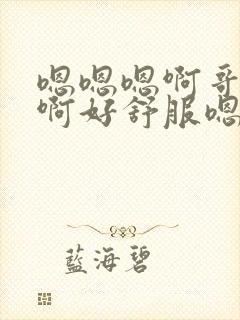 嗯嗯嗯啊哥
啊好舒服嗯
藍海碧